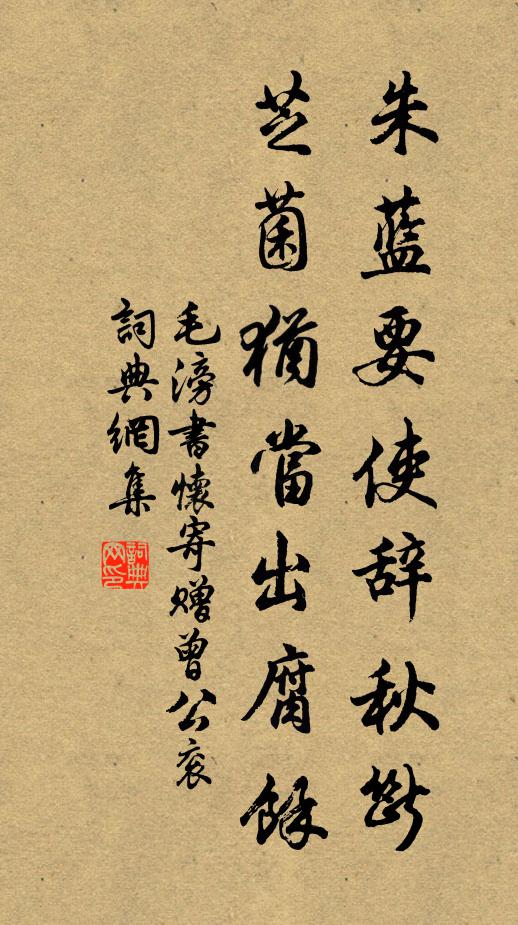 朱藍要使辞秋斷
芝菌猶當出腐餘
毛滂書懷寄贈曾公衮
詞典網集
詞典网印